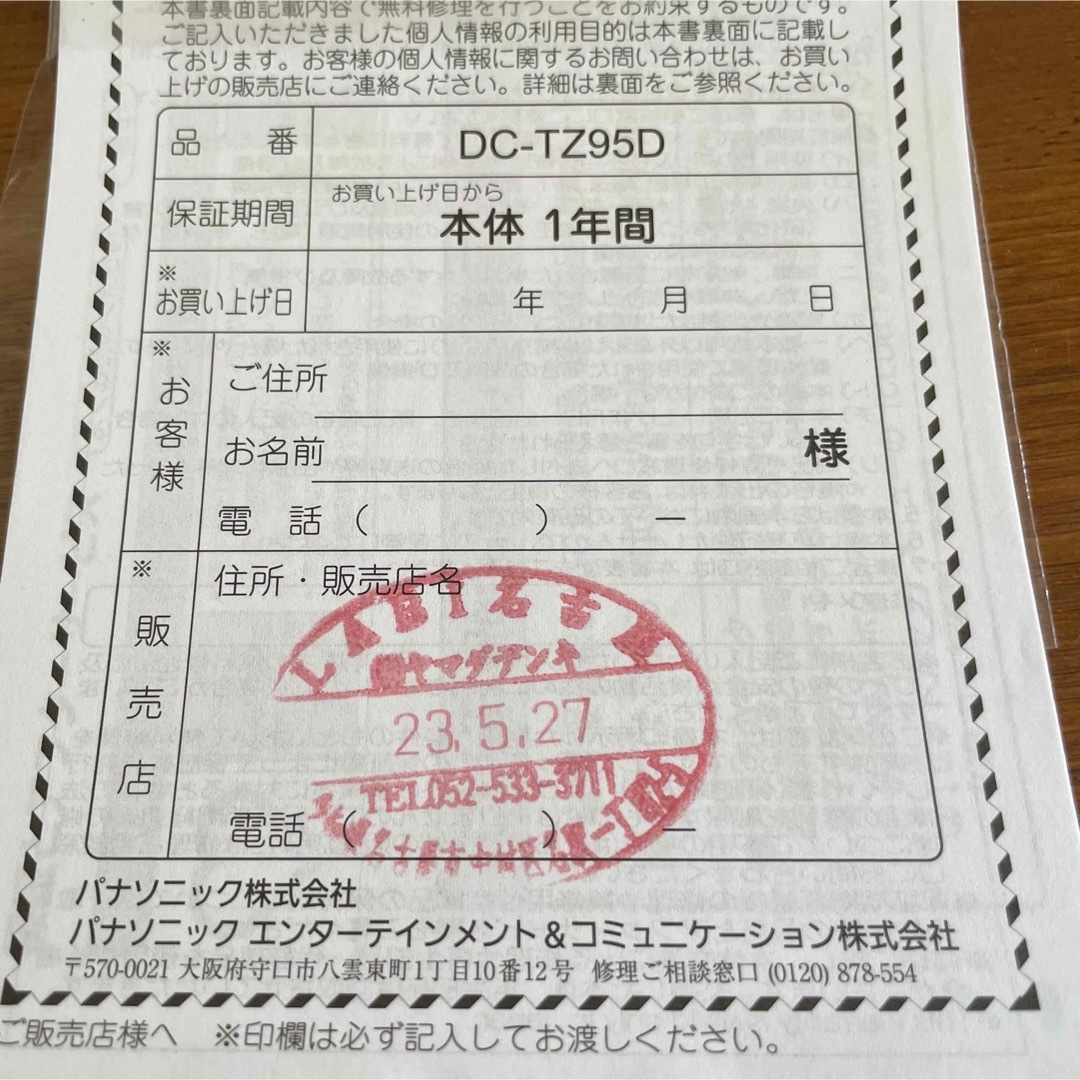 本書裏面記載内容で無料修理を行うことをお約束するものです。
ご記入いただきました個人情報の利用目的は本書裏面に記載し
ております。お客様の個人情報に関するお問い合わせは、お買い
上げの販売店にご連絡ください。詳細は裏面をご参照ください。
品 番 DC-TZ95D
保証期間 お買い上げ日から
本体 1年間
※
お買い上げ日 年 月 日
※お客様
ご住所
お名前 様
電 話 ( ) ―
※販売店
住所・販売店名
LABI名古屋
㈱ヤマダデンキ
23.5.27
TEL052-533-3711
電話 ( ) ―
パナソニック株式会社
パナソニック エンターテインメント&コミュニケーション株式会社
〒570-0021 大阪府守口市八雲東町1丁目10番12号 修理ご相談窓口 (0120) 878-554
ご販売店様へ ※印欄は必ず記入してお渡しください。